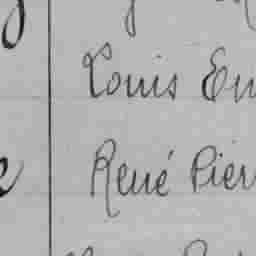 Louis Em
René Pier